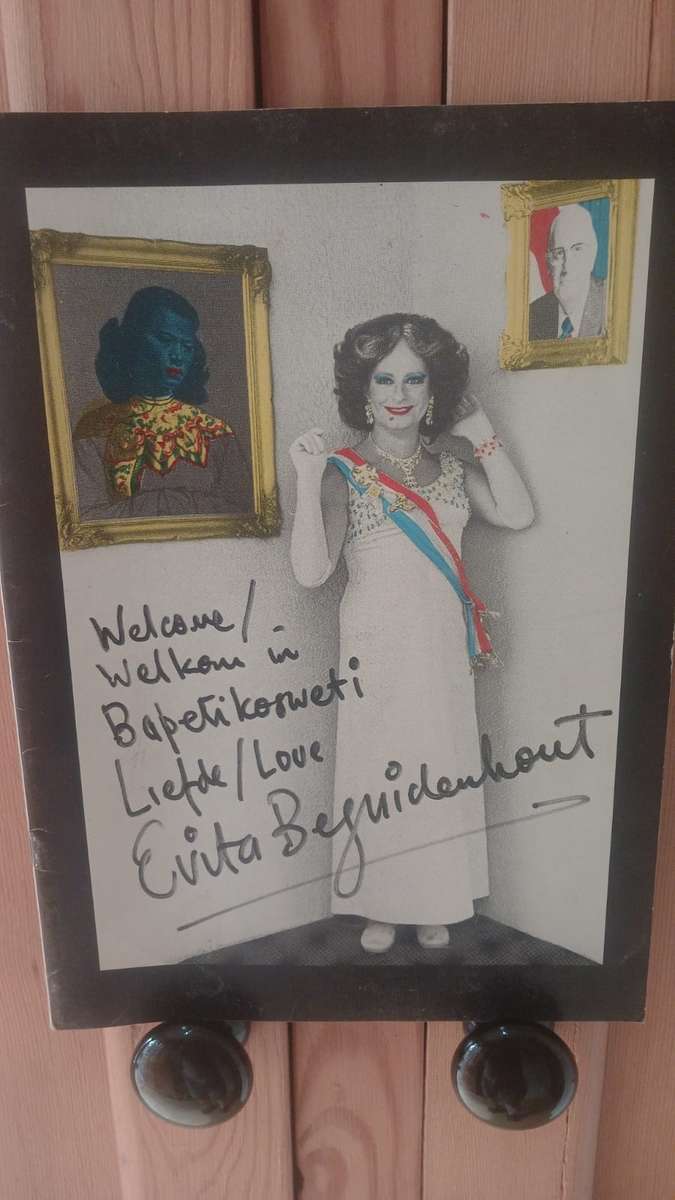 Welcome/
Welkom in
Bapetikosweti
Liefde/Love
Evita Bezuidenhout